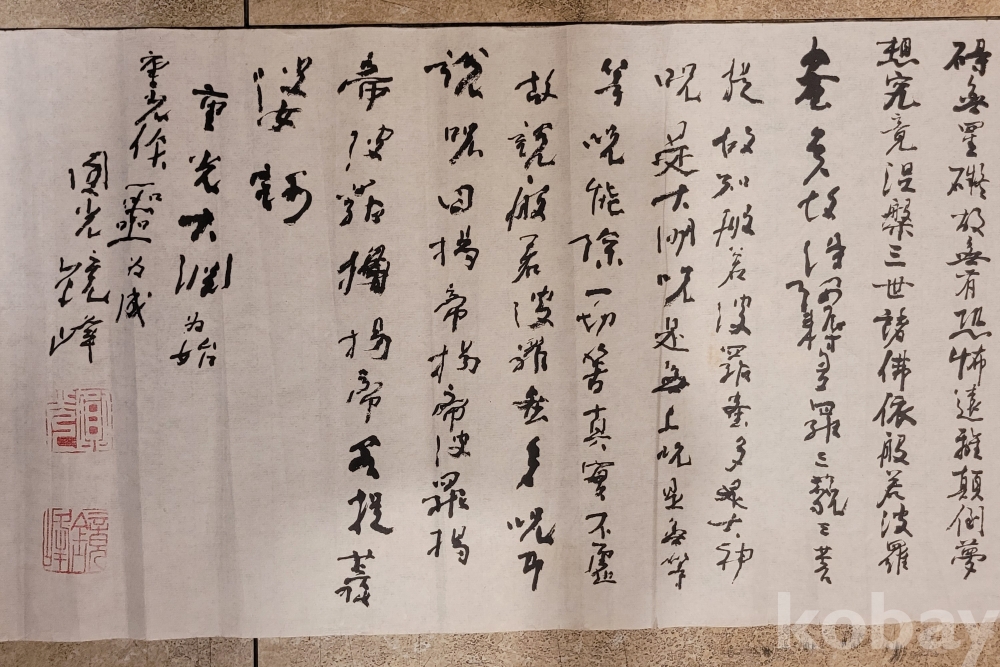 碍無罣礙故無有恐怖遠離顛倒夢
想究竟涅槃三世諸佛依般若波羅
蜜多故得阿耨多羅三藐三菩
提故知般若波羅蜜多是大神
呪是大明呪是無上呪是無等
等呪能除一切苦真實不虛
故說般若波羅蜜多呪即
說呪曰揭帝揭帝波羅揭
帝波羅僧揭帝菩提薩
重光大淵為始
重光作噩為成
圓光鏡峰
圓光
鏡峰
kobay